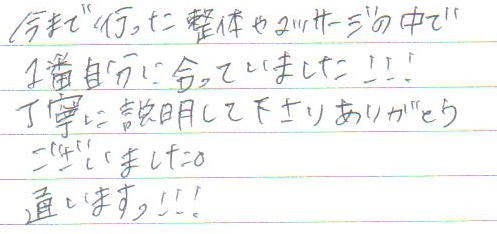 今まで行った整体やマッサージの中で
1番自分に合っていました!!!
丁寧に説明して下さりありがとう
ございました。
通います。!!!